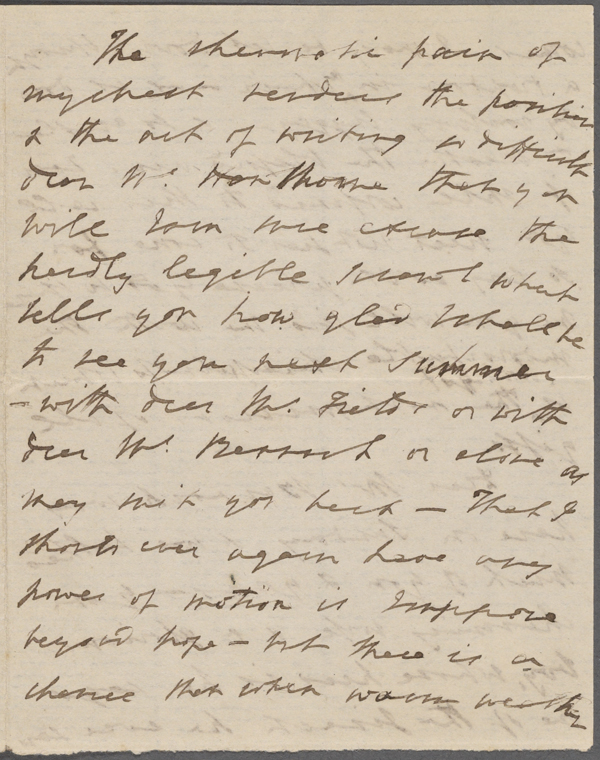 The rheumatic pain of
my chest renders the position
& the act of writing so difficult
dear Mr. Hawthorne that you
will I am sure excuse the
hardly legible scrawl which
tells you how glad I shall be
to see you next Summer
- with dear Mr. Fields or with
dear Mr. Bennoch or alone as
may suit you best - That I
should ever again have any
power of motion is I suppose
beyond hope - but there is a
chance that when warm weather